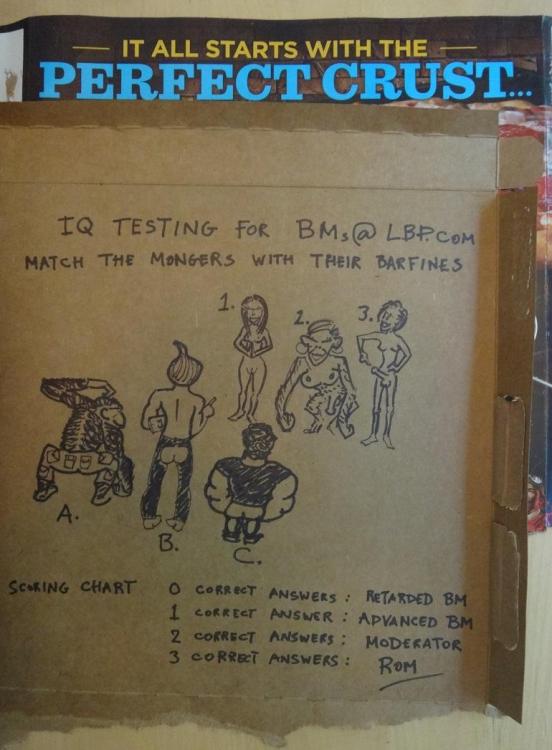 IT ALL STARTS WITH THE
PERFECT CRUST...
IQ TESTING FOR BMs@LBP.COM
MATCH THE MONGERS WITH THEIR BARFINES
1.
2.
3.
A.
B.
C.
SCORING CHART
0 CORRECT ANSWERS: RETARDED BM
1 CORRECT ANSWER: ADVANCED BM
2 CORRECT ANSWERS: MODERATOR
3 CORRECT ANSWERS: ROM